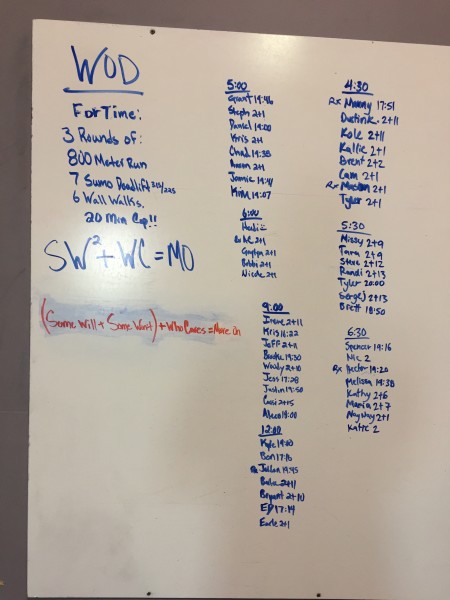 WOD
For Time:
3 Rounds of:
800 Meter Run
7 Sumo Deadlift 315/225
6 Wall Walks.
20 Min Cap!!
SW²+WC=MO
(Some Will + Some Won't) + Who Cares = Move On
5:00
Grant 19:46
Steph 2+1
Daniel 19:00
Kris 2+1
Chad 19:38
Aaron 2+1
Jamie 19:41
Kim 19:07
6:00
2+1
2+1
Bobbi 2+1
Nicole 2+1
9:00
Irene 2+11
Kris 16:22
Jeff 2+11
Brooke 19:30
Woody 2+10
Jess 17:28
Justin 19:50
2+15
19:00
12:00
Kyle 19:00
Ben 17:16
19:45
2+11
Bryant 2+10
ED 17:14
Earle 2+1
4:30
Rx Manny 17:51
Dustin 2+11
Kole 2+11
Kallie 2+1
Brent 2+2
Cam 2+1
Rx 2+1
Tyler 2+1
5:30
Missy 2+9
Tara 2+9
Steve 2+12
Randi 2+13
Tyler 20:00
Sergej 2+13
Brett 18:50
6:30
Spencer 19:16
Nic 2
Rx Hector 19:20
Melissa 19:38
Kathy 2+6
Maria 2+7
2+1
Katie 2